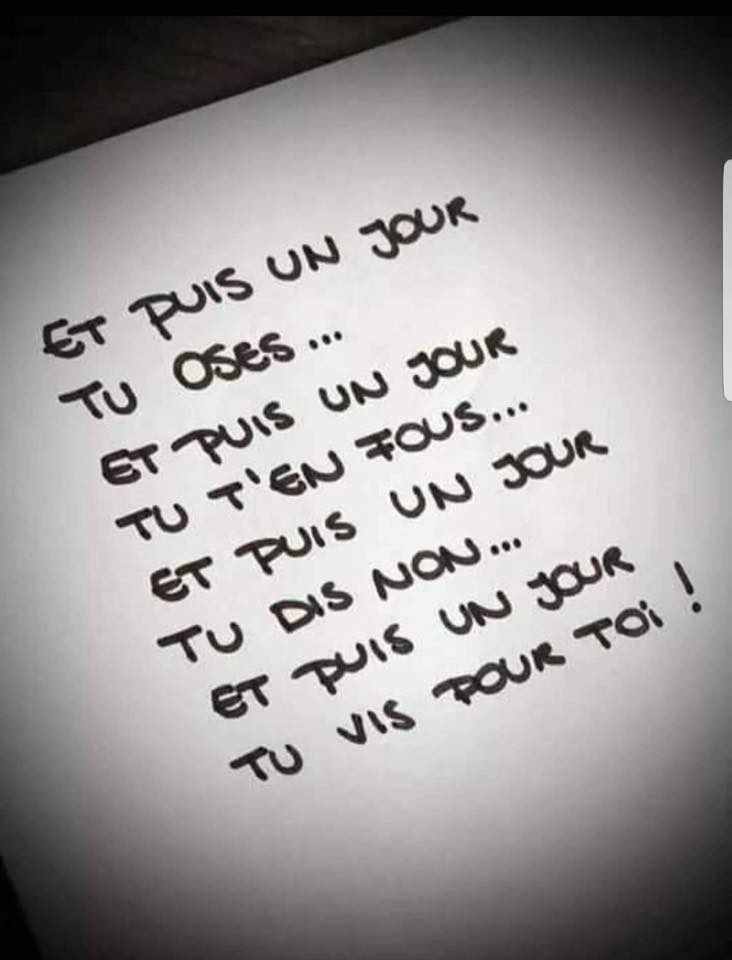 ET PUIS UN JOUR
TU OSES...
ET PUIS UN JOUR
TU T'EN FOUS...
ET PUIS UN JOUR
TU DIS NON...
ET PUIS UN JOUR
TU VIS POUR TOi !